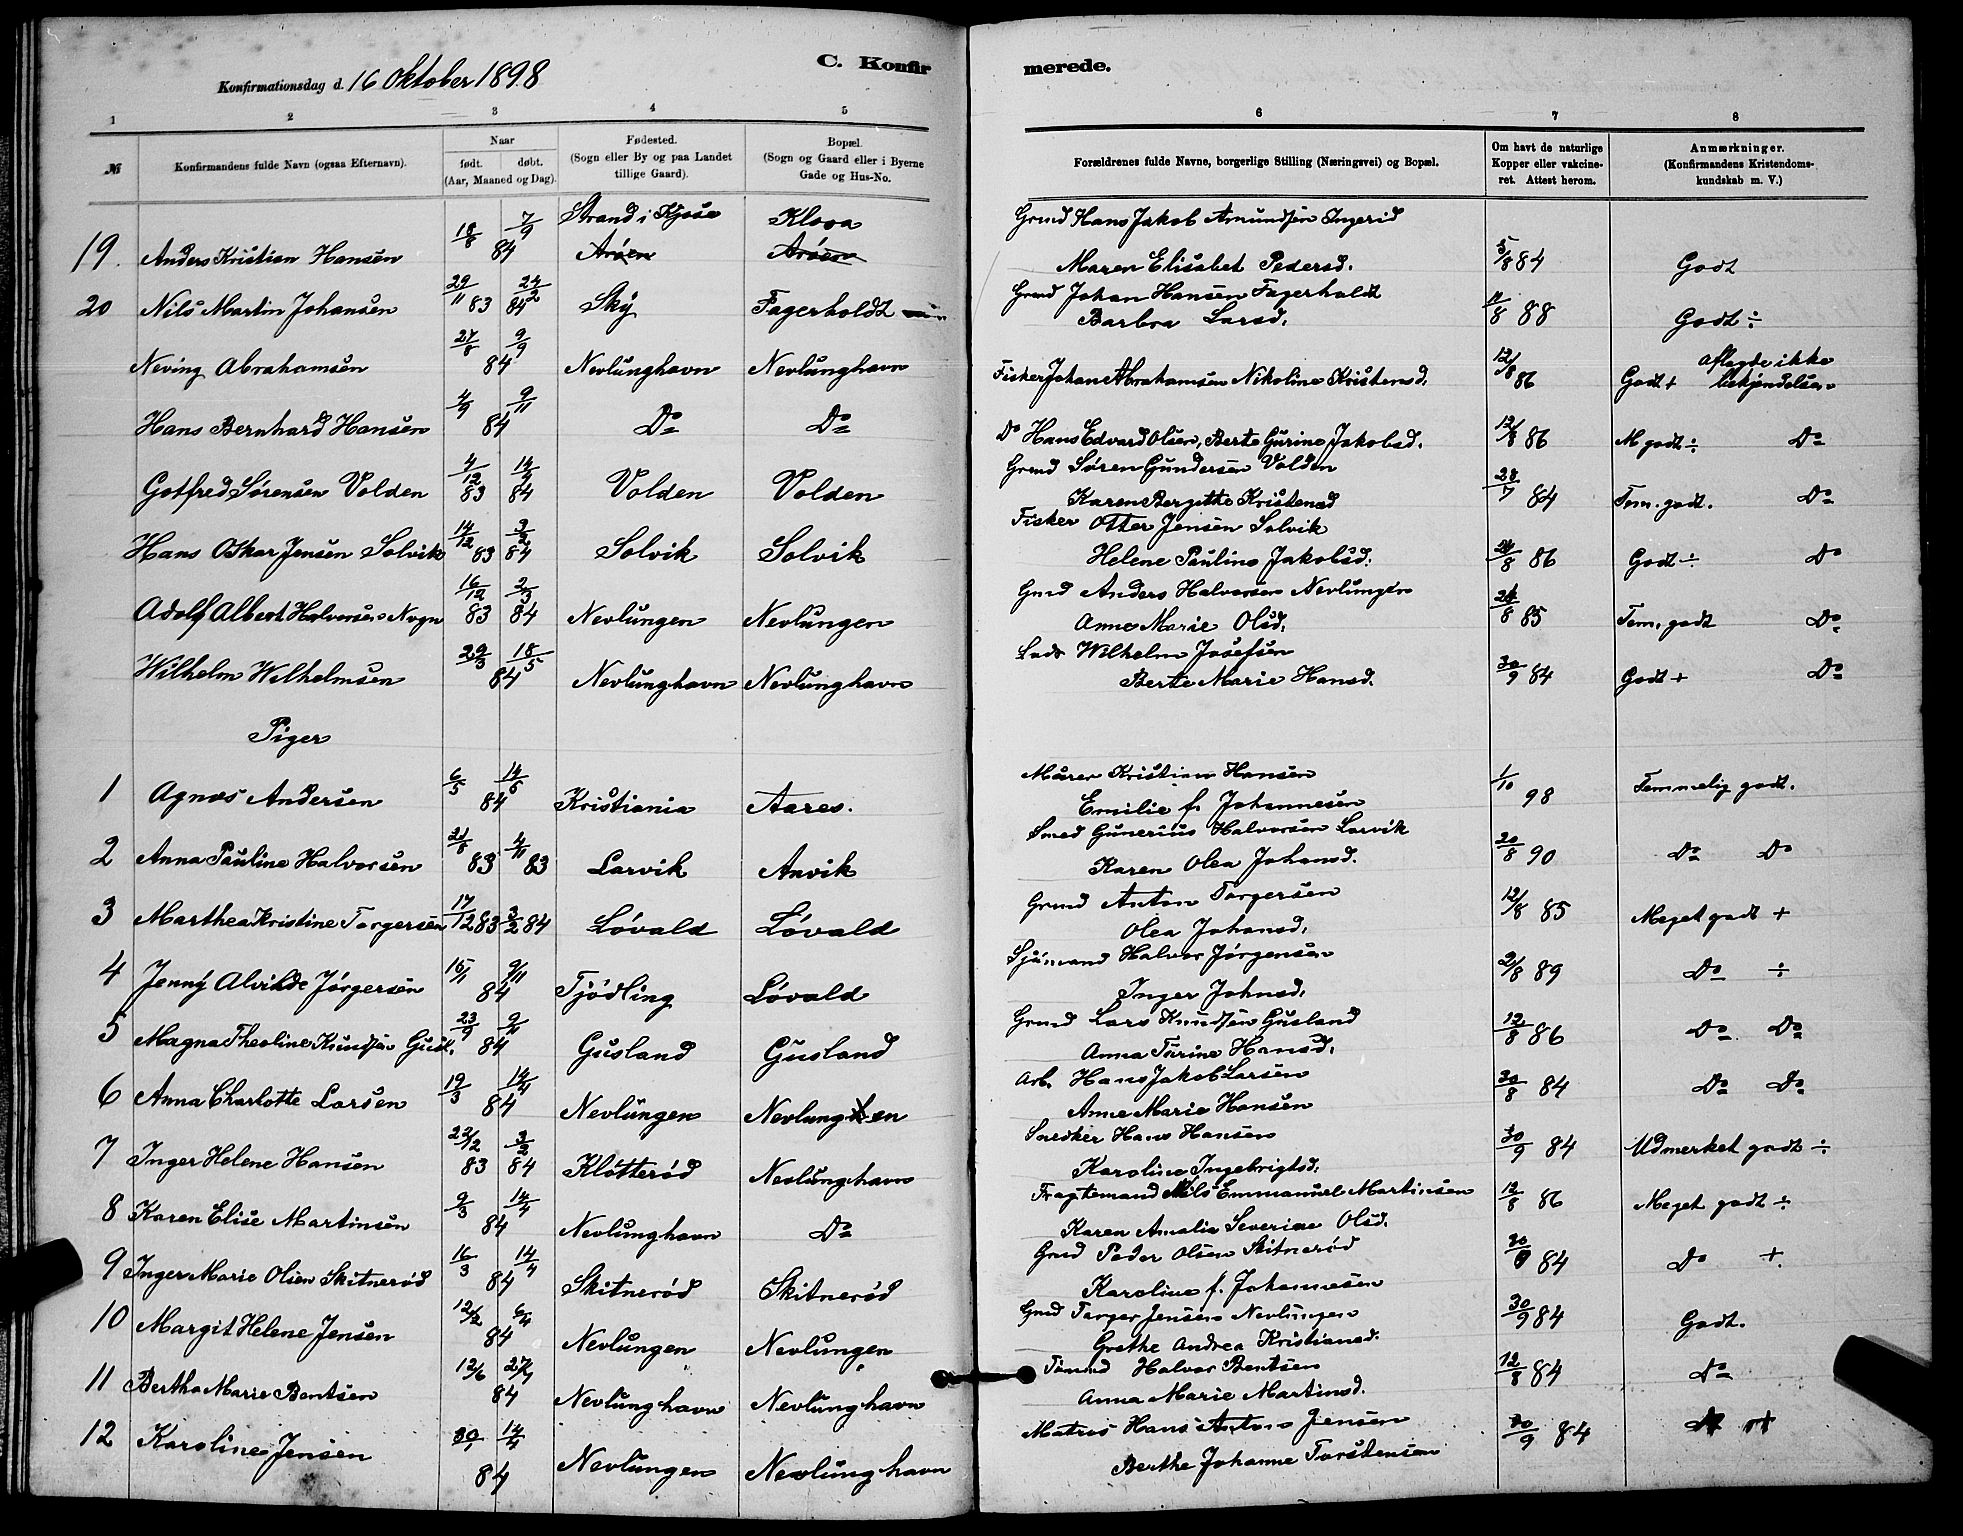 Konfirmationsdag d. 16 Oktober 1898
C. Konfirmerede.
1 2 3 4 5 6 7 8
№ Konfirmandens fulde Navn (ogsaa Efternavn). Naar født. døbt. (Aar, Maaned og Dag). Fødested. (Sogn eller By og paa Landet tillige Gaard). Bopæl. (Sogn og Gaard eller i Byerne Gade og Hus-No. Forældrenes fulde Navne, borgerlige Stilling (Næringsvei) og Bopæl. Om havt de naturlige Kopper eller vakcineret. Attest herom. Anmærkninger. (Konfirmandens Kristendomskundskab m. V.)
Strand i Kjose Klova Grmd Hans Jakob Amundsen Ingerid
19. Anders Kristian Hansen 18/8 7/9 84 Aröen Aröen Maren Elisabet Pedersd. 5/8 84 Godt
Grmd Johan Hansen Fagerholdt
20 Nils Martin Johansen 29/11 83 24/2 84 Sky Fagerholdt Barbra Larsd. 11/8 88 Godt ÷
aflagde ikke
Neving Abrahamsen 27/8 9/9 84 Nevlunghavn Nevlunghavn Fisker Johan Abrahamsen Nikoline Kristensd. 12/8 86 Godt + bekjendelsen
Hans Bernhard Hansen 4/9 9/11 84 Do Do Do Hans Edvard Olsen, Berte Gurine Jakobsd. 12/8 86 M godt ÷ Do
Grmd Søren Gundersen Volden
Gotfred Sørensen Volden 4/12 83 14/4 84 Volden Volden Karen Bergitte Kristensd 28/7 84 Tem. godt. Do
Fisker Otter Jensen Solvik
Hans Oskar Jensen Solvik 14/12 83 3/2 84 Solvik Solvik Helene Pauline Jakobsd. /8 86 Godt ÷ Do
Grmd Anders Halvorsen Nevlungen
Adolf Albert Halvorsen Nvgn 16/12 83 2/3 84 Nevlungen Nevlungen Anne Marie Olsd. /8 85 Tem. godt Do
Lods Wilhelm Josefsen
Wilhelm Wilhelmsen 29/3 18/5 84 Nevlunghavn Nevlunghavn Berte Marie Hansd. 30/9 84 Godt + Do
Piger
Murer Kristian Hansen
1 Agnes Andersen 6/5 14/6 84 Kristiania Aares. Emilie f. Johannesen 1/10 98 Temmelig godt.
Smed Gunerius Halvorsen Larvik
2 Anna Pauline Halvorsen 21/8 83 4/11 83 Larvik Anvik Karen Olea Johansd. 20/8 90 Do Do
Grmd Anton Torgersen
3 Marthea Kristine Torgersen 17/12 83 3/2 84 Løvald Løvald Olea Johansd. 12/8 85 Meget godt +
Sjømand Halvor Jørgensen
4 Jenny Alvilde Jørgensen 15/1 9/11 84 Tjødling Løvald Inger Johnsd. 2/8 89 Do ÷
Grmd Lars Knudsen Gusland
5 Magna Theoline Knudsen Gusl. 23/9 84 Gusland Gusland Anna Turine Hansd. 12/8 86 Do Do
Arb. Hans Jakob Larsen
6 Anna Charlotte Larsen 19/3 14/4 84 Nevlungen Nevlungen Anne Marie Hansen 30/8 84 Do Do
Snedker Hans Hansen
7 Inger Helene Hansen 22/12 83 3/2 84 Kløtterød Nevlunghavn Karoline Ingebrigtsd. 30/9 84 Udmerket godt ÷
Fragtemand Nils Emmanuel Martinsen
8 Karen Elise Martinsen 9/3 14/4 84 Nevlunghavn Do Karen Amalia Severine Olsd. 12/8 86 Meget godt ÷
Grmd Peder Olsen Skitnerød
9 Inger Marie Olsen Skitnerød 16/3 14/4 84 Skitnerød Skitnerød Karoline f. Johannesen 30/9 84 Do +
Grmd Torger Jensen Nevlungen
10 Margit Helene Jensen 12/2 6/4 84 Nevlungen Nevlungen Grethe Andrea Kristiansd. 30/9 84 Godt.
Tømmd Halvor Bentsen
11 Berthe Marie Bentsen 12/6 27/7 84 Nevlunghavn Nevlunghavn Anna Marie Martinsd. 12/8 84 Do
Matros Hans Anton Jensen
12 Karoline Jensen 30/1 14/4 84 Nevlungen Nevlunghavn Berthe Johanne Torstensen 30/9 84 +